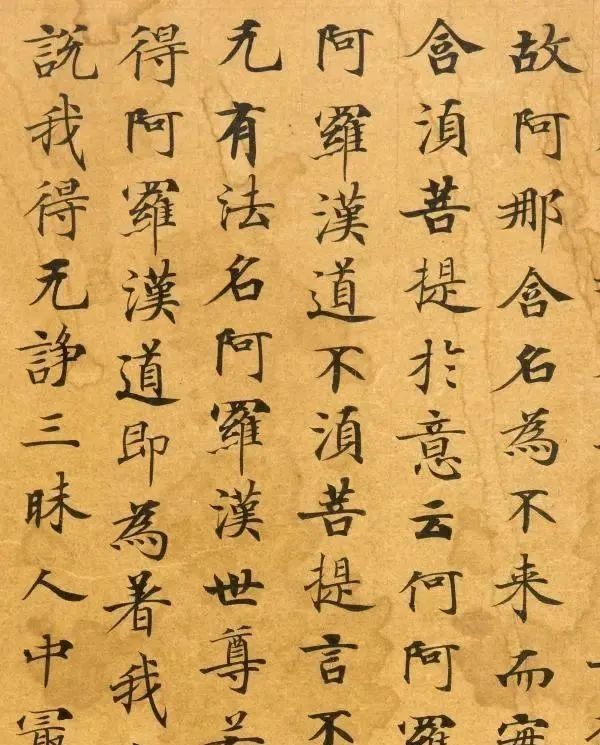 故阿那含名為不来而實
含湏菩提於意云何阿羅
阿羅漢道不湏菩提言不
无有法名阿羅漢世尊若
得阿羅漢道即為著我
說我得无諍三昧人中冣